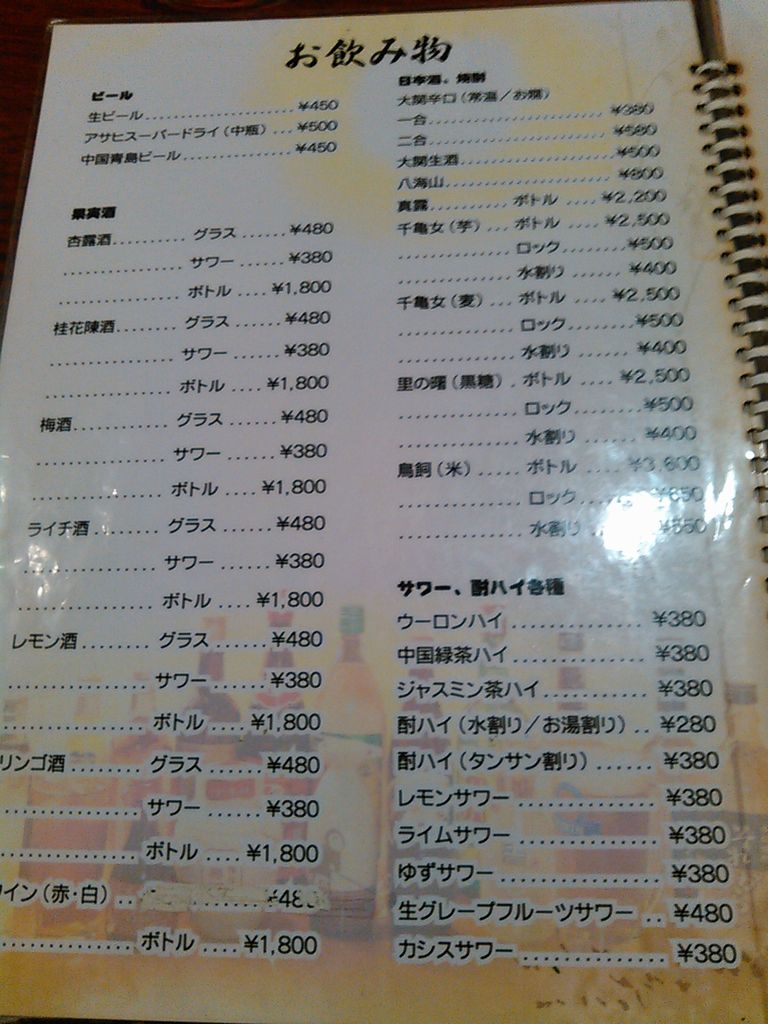 お飲み物
ビール
生ビール..................¥450
アサヒスーパードライ(中瓶)...¥500
中国青島ビール..............¥450
果実酒
杏露酒.......... グラス ......¥480
.................. サワー ......¥380
.................. ボトル ....¥1,800
桂花陳酒........ グラス ......¥480
.................. サワー ......¥380
.................. ボトル ....¥1,800
梅酒............. グラス ......¥480
.................. サワー ......¥380
.................. ボトル ....¥1,800
ライチ酒......... グラス ......¥480
.................. サワー ......¥380
.................. ボトル ....¥1,800
レモン酒........ グラス ......¥480
.................. サワー ......¥380
.................. ボトル ....¥1,800
リンゴ酒........ グラス ......¥480
.................. サワー ......¥380
.................. ボトル ....¥1,800
イン(赤・白) .. ¥48
.................. ボトル ....¥1,800
日本酒、焼酎
大関辛口(常温/お燗)
一合........................¥380
二合........................¥580
大関生酒....................¥500
八海山......................¥800
真露............ ボトル ....¥2,200
千亀女(芋) ... ボトル ....¥2,500
................ ロック........¥500
................ 水割り .......¥400
千亀女(麦) ... ボトル ....¥2,500
................ ロック........¥500
................ 水割り .......¥400
里の曙(黒糖) . ボトル ....¥2,500
................ ロック........¥500
................ 水割り .......¥400
鳥飼(米) ..... ボトル ....¥3,600
................ ロック ......¥650
................ 水割り ¥550
サワー、酎ハイ各種
ウーロンハイ ..............¥380
中国緑茶ハイ..............¥380
ジャスミン茶ハイ...........¥380
酎ハイ(水割り/お湯割り) ..¥280
酎ハイ(タンサン割り) ......¥380
レモンサワー ..............¥380
ライムサワー ..............¥380
ゆずサワー.................¥380
生グレープフルーツサワー ..¥480
カシスサワー ..............¥380